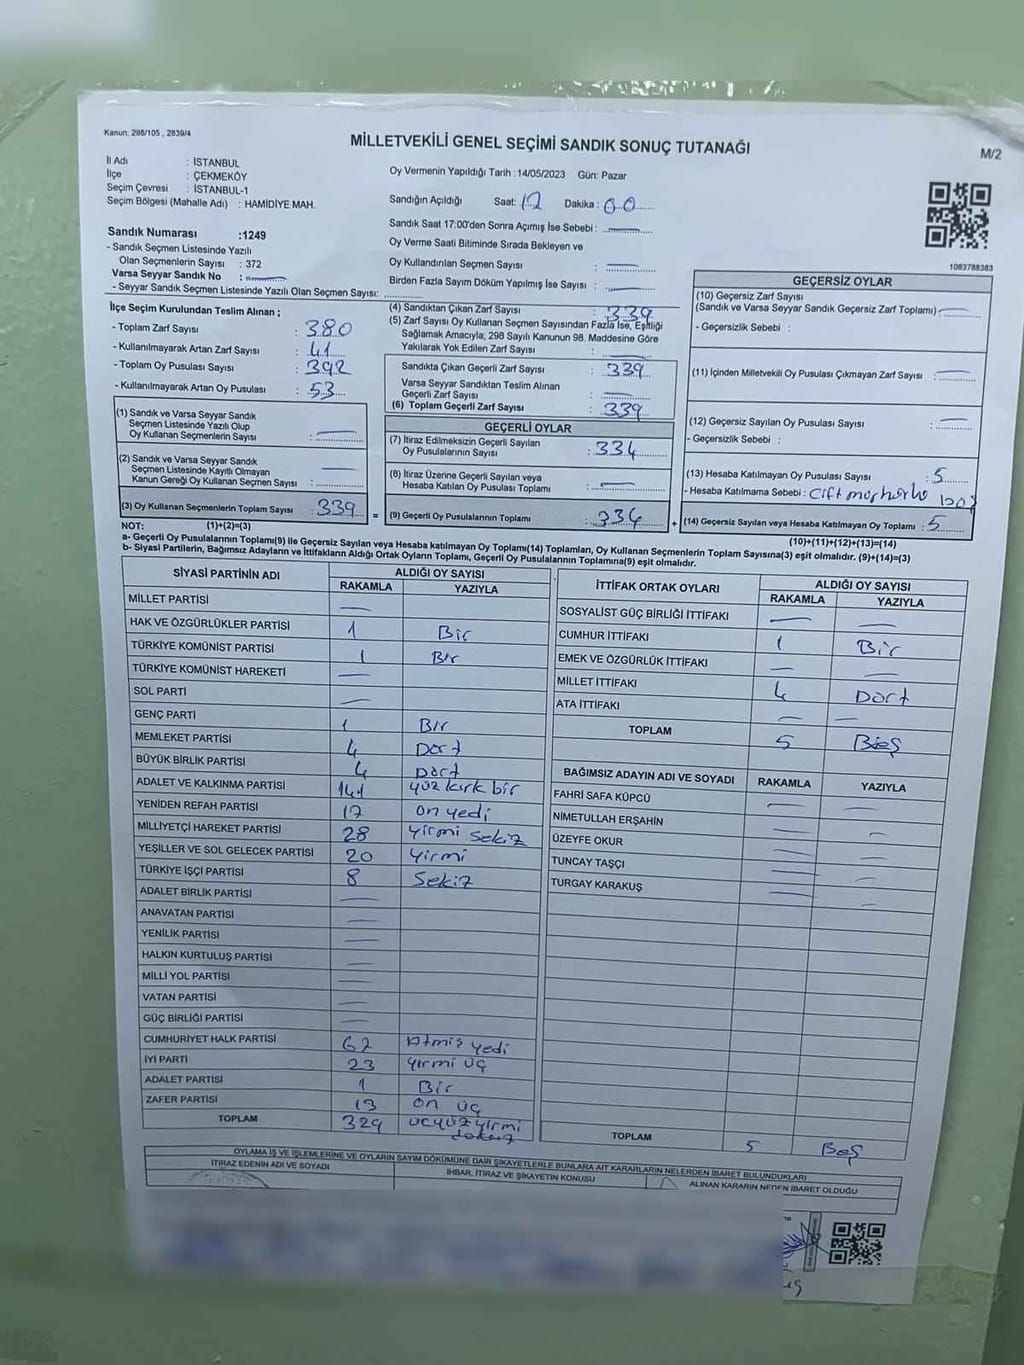 Kanun: 298/105 , 2839/4
MİLLETVEKİLİ GENEL SEÇİMİ SANDIK SONUÇ TUTANAĞI
M/2
İl Adı : İSTANBUL
İlçe : ÇEKMEKÖY
Seçim Çevresi : İSTANBUL-1
Seçim Bölgesi (Mahalle Adı) : HAMİDİYE MAH.
Oy Vermenin Yapıldığı Tarih : 14/05/2023 Gün: Pazar
Sandığın Açıldığı Saat: 17 Dakika : 00
Sandık Saat 17:00'den Sonra Açımış İse Sebebi : —
Oy Verme Saati Bitiminde Sırada Bekleyen ve
Oy Kullandırılan Seçmen Sayısı : —
Birden Fazla Sayım Döküm Yapılmış İse Sayısı : —
Sandık Numarası :1249
- Sandık Seçmen Listesinde Yazılı
Olan Seçmenlerin Sayısı : 372
Varsa Seyyar Sandık No : —
- Seyyar Sandık Seçmen Listesinde Yazılı Olan Seçmen Sayısı:
1083788383
İlçe Seçim Kurulundan Teslim Alınan ;
- Toplam Zarf Sayısı : 380
- Kullanılmayarak Artan Zarf Sayısı : 41
- Toplam Oy Pusulası Sayısı : 392
- Kullanılmayarak Artan Oy Pusulası : 53
(1) Sandık ve Varsa Seyyar Sandık
Seçmen Listesinde Yazılı Olup
Oy Kullanan Seçmenlerin Sayısı : —
(2) Sandık ve Varsa Seyyar Sandık
Seçmen Listesinde Kayıtlı Olmayan
Kanun Gereği Oy Kullanan Seçmen Sayısı : —
(3) Oy Kullanan Seçmenlerin Toplam Sayısı : 339
(1)+(2)=(3)
(4) Sandıktan Çıkan Zarf Sayısı : 339
(5) Zarf Sayısı Oy Kullanan Seçmen Sayısından Fazla İse, Eşitliği
Sağlamak Amacıyla; 298 Sayılı Kanunun 98. Maddesine Göre
Yakılarak Yok Edilen Zarf Sayısı : —
Sandıkta Çıkan Geçerli Zarf Sayısı : 339
Varsa Seyyar Sandıktan Teslim Alınan
Geçerli Zarf Sayısı : —
(6) Toplam Geçerli Zarf Sayısı : 339
GEÇERLİ OYLAR
(7) İtiraz Edilmeksizin Geçerli Sayılan
Oy Pusulalarının Sayısı : 334
(8) İtiraz Üzerine Geçerli Sayılan veya
Hesaba Katılan Oy Pusulası Toplamı : —
= (9) Geçerli Oy Pusulalarının Toplamı : 334
GEÇERSİZ OYLAR
(10) Geçersiz Zarf Sayısı
(Sandık ve Varsa Seyyar Sandık Geçersiz Zarf Toplamı) : —
- Geçersizlik Sebebi :
(11) İçinden Milletvekili Oy Pusulası Çıkmayan Zarf Sayısı : —
(12) Geçersiz Sayılan Oy Pusulası Sayısı : —
- Geçersizlik Sebebi :
(13) Hesaba Katılmayan Oy Pusulası Sayısı : 5
- Hesaba Katılmama Sebebi : Çift
+ (14) Geçersiz Sayılan veya Hesaba Katılmayan Oy Toplamı : 5
(10)+(11)+(12)+(13)=(14)
NOT:
a- Geçerli Oy Pusulalarının Toplamı(9) ile Geçersiz Sayılan veya Hesaba katılmayan Oy Toplamı(14) Toplamları, Oy Kullanan Seçmenlerin Toplam Sayısına(3) eşit olmalıdır. (9)+(14)=(3)
b- Siyasi Partilerin, Bağımsız Adayların ve İttifakların Aldığı Ortak Oyların Toplamı, Geçerli Oy Pusulalarının Toplamına(9) eşit olmalıdır.
SİYASİ PARTİNİN ADI ALDIĞI OY SAYISI
RAKAMLA YAZIYLA
MİLLET PARTİSİ —
HAK VE ÖZGÜRLÜKLER PARTİSİ 1 Bir
TÜRKİYE KOMÜNİST PARTİSİ 1 Bir
TÜRKİYE KOMÜNİST HAREKETİ —
SOL PARTİ —
GENÇ PARTİ 1 Bir
MEMLEKET PARTİSİ 4 Dört
BÜYÜK BİRLİK PARTİSİ 4 Dört
ADALET VE KALKINMA PARTİSİ 141 yüz kırk bir
YENİDEN REFAH PARTİSİ 17 on yedi
MİLLİYETÇİ HAREKET PARTİSİ 28 yirmi sekiz
YEŞİLLER VE SOL GELECEK PARTİSİ 20 yirmi
TÜRKİYE İŞÇİ PARTİSİ 8 Sekiz
ADALET BİRLİK PARTİSİ —
ANAVATAN PARTİSİ —
YENİLİK PARTİSİ —
HALKIN KURTULUŞ PARTİSİ —
MİLLİ YOL PARTİSİ —
VATAN PARTİSİ —
GÜÇ BİRLİĞİ PARTİSİ —
CUMHURİYET HALK PARTİSİ 67 Atmış yedi
İYİ PARTİ 23 yirmi üç
ADALET PARTİSİ 1 Bir
ZAFER PARTİSİ 13 on üç
TOPLAM 329 üçyüz yirmi dokuz
İTTİFAK ORTAK OYLARI ALDIĞI OY SAYISI
RAKAMLA YAZIYLA
SOSYALİST GÜÇ BİRLİĞİ İTTİFAKI — —
CUMHUR İTTİFAKI 1 Bir
EMEK VE ÖZGÜRLÜK İTTİFAKI — —
MİLLET İTTİFAKI 4 Dört
ATA İTTİFAKI — —
TOPLAM 5 Beş
BAĞIMSIZ ADAYIN ADI VE SOYADI RAKAMLA YAZIYLA
FAHRİ SAFA KÜPCÜ — —
NİMETULLAH ERŞAHİN — —
ÜZEYFE OKUR — —
TUNCAY TAŞÇI — —
TURGAY KARAKUŞ — —
TOPLAM 5 Beş
OYLAMA İŞ VE İŞLEMLERİNE VE OYLARIN SAYIM DÖKÜMÜNE DAİR ŞİKAYETLERLE BUNLARA AİT KARARLARIN NELERDEN İBARET BULUNDUKLARI
İTİRAZ EDENİN ADI VE SOYADI İHBAR, İTİRAZ VE ŞİKAYETİN KONUSU ALINAN KARARIN NEDEN İBARET OLDUĞU